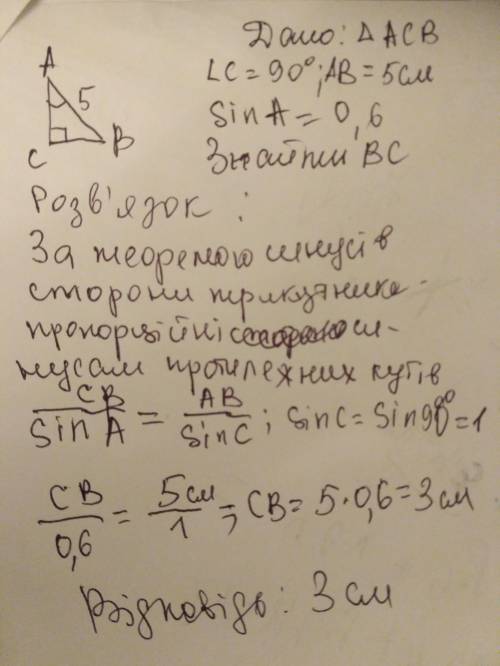 Дано: △ ACB
∟C = 90°; AB = 5см
A
5
sin A = 0,6
C
B
Знайти BC
Розв'язок :
За теоремою синусів
сторони трикутника
пропорційні си-
нусам протилежних кутів
CB / Sin A = AB / Sin C ; Sin C = Sin 90° = 1
CB / 0,6 = 5см / 1 ; CB = 5·0,6 = 3 см
Відповідь : 3 см